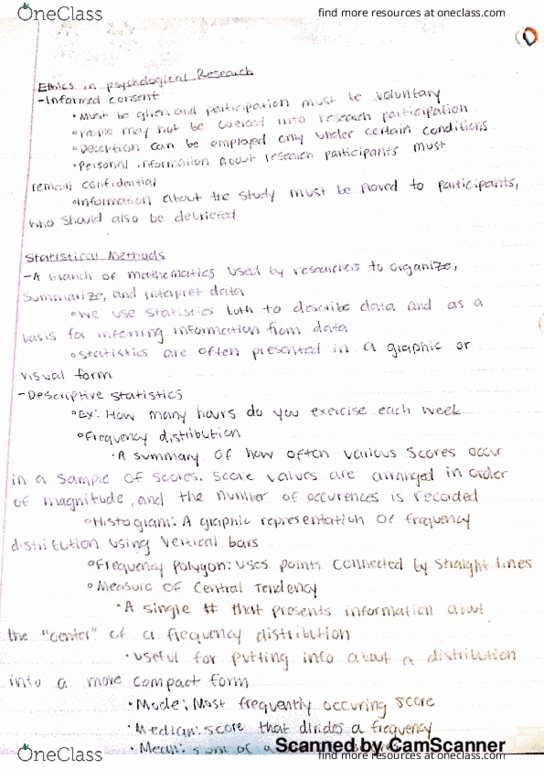 OneClass
find more resources at oneclass.com
Ethics in psychological Research
-Informed consent
• Must be given and participation must be voluntary
• People may not be coerced into research participation
• Deception can be employed only under certain conditions
• Personal information about research participants must
remain confidential
• Information about the study must be proved to participants,
who should also be debriefed
Statistical Methods
-A branch of mathematics used by researchers to organize,
summarize, and interpret data
• We use statistics both to describe data and as a
basis for inferring information from data
• Statistics are often presented in a graphic or
visual form
-Descriptive statistics
• Ex: How many hours do you exercise each week
• Frequency distribution
• A summary of how often various scores occur
in a sample of scores. Score values are arranged in order
of magnitude, and the number of occurences is recoded
• Histogram: A graphic representation of frequency
distribution using vertical bars
• Frequency Polygon: uses points connected by straight lines
• Measure of Central Tendency
• A single # that presents information about
the "center" of a frequency distribution
• Useful for putting info about a distribution
into a more compact form
• Mode: Most frequently occuring score
• Median: score that divides a frequency
• Mean: sum of a
Scanned by CamScanner
OneClass
find more resources at oneclass.com